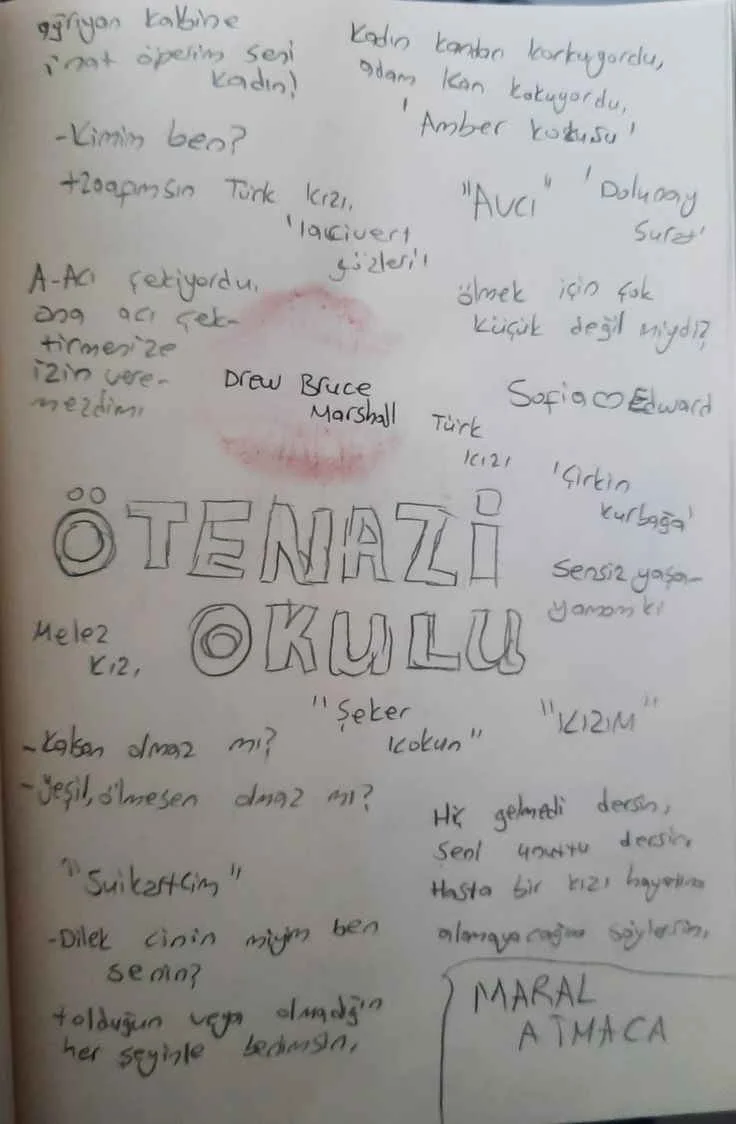 ağrıyan kalbine
inat öperim seni
kadın!
Kadın kandan korkuyordu,
adam kan kokuyordu,
'Amber kokusu'
-Kimim ben?
+Zoapmsın Türk kızı,
'lacivert
gözleri'!
"AVCI"
'Dolunay
Surat'
A-Acı çekiyordu,
ona acı çek-
tirmenize
izin vere-
mezdim!
ölmek için çok
küçük değil miydi?
Drew Bruce
Marshall
Sofia♡Edward
Türk
kızı
'Çirkin
kurbağa'
ÖTENAZİ
OKULU
Sensiz yaşa-
yamam ki
Melez
kız,
"Şeker
kokun"
"KIZIM"
-Kalsan olmaz mı?
-Yeşil, ölmesen olmaz mı?
Hiç gelmedi dersin,
Seni unuttu dersin,
Hasta bir kızı hayatına
alamayacağını söylersin,
"Suikastçim"
-Dilek cinin miyim ben
senin?
+olduğun veya olmadığın
her şeyinle benimsin,
MARAL
ATMACA